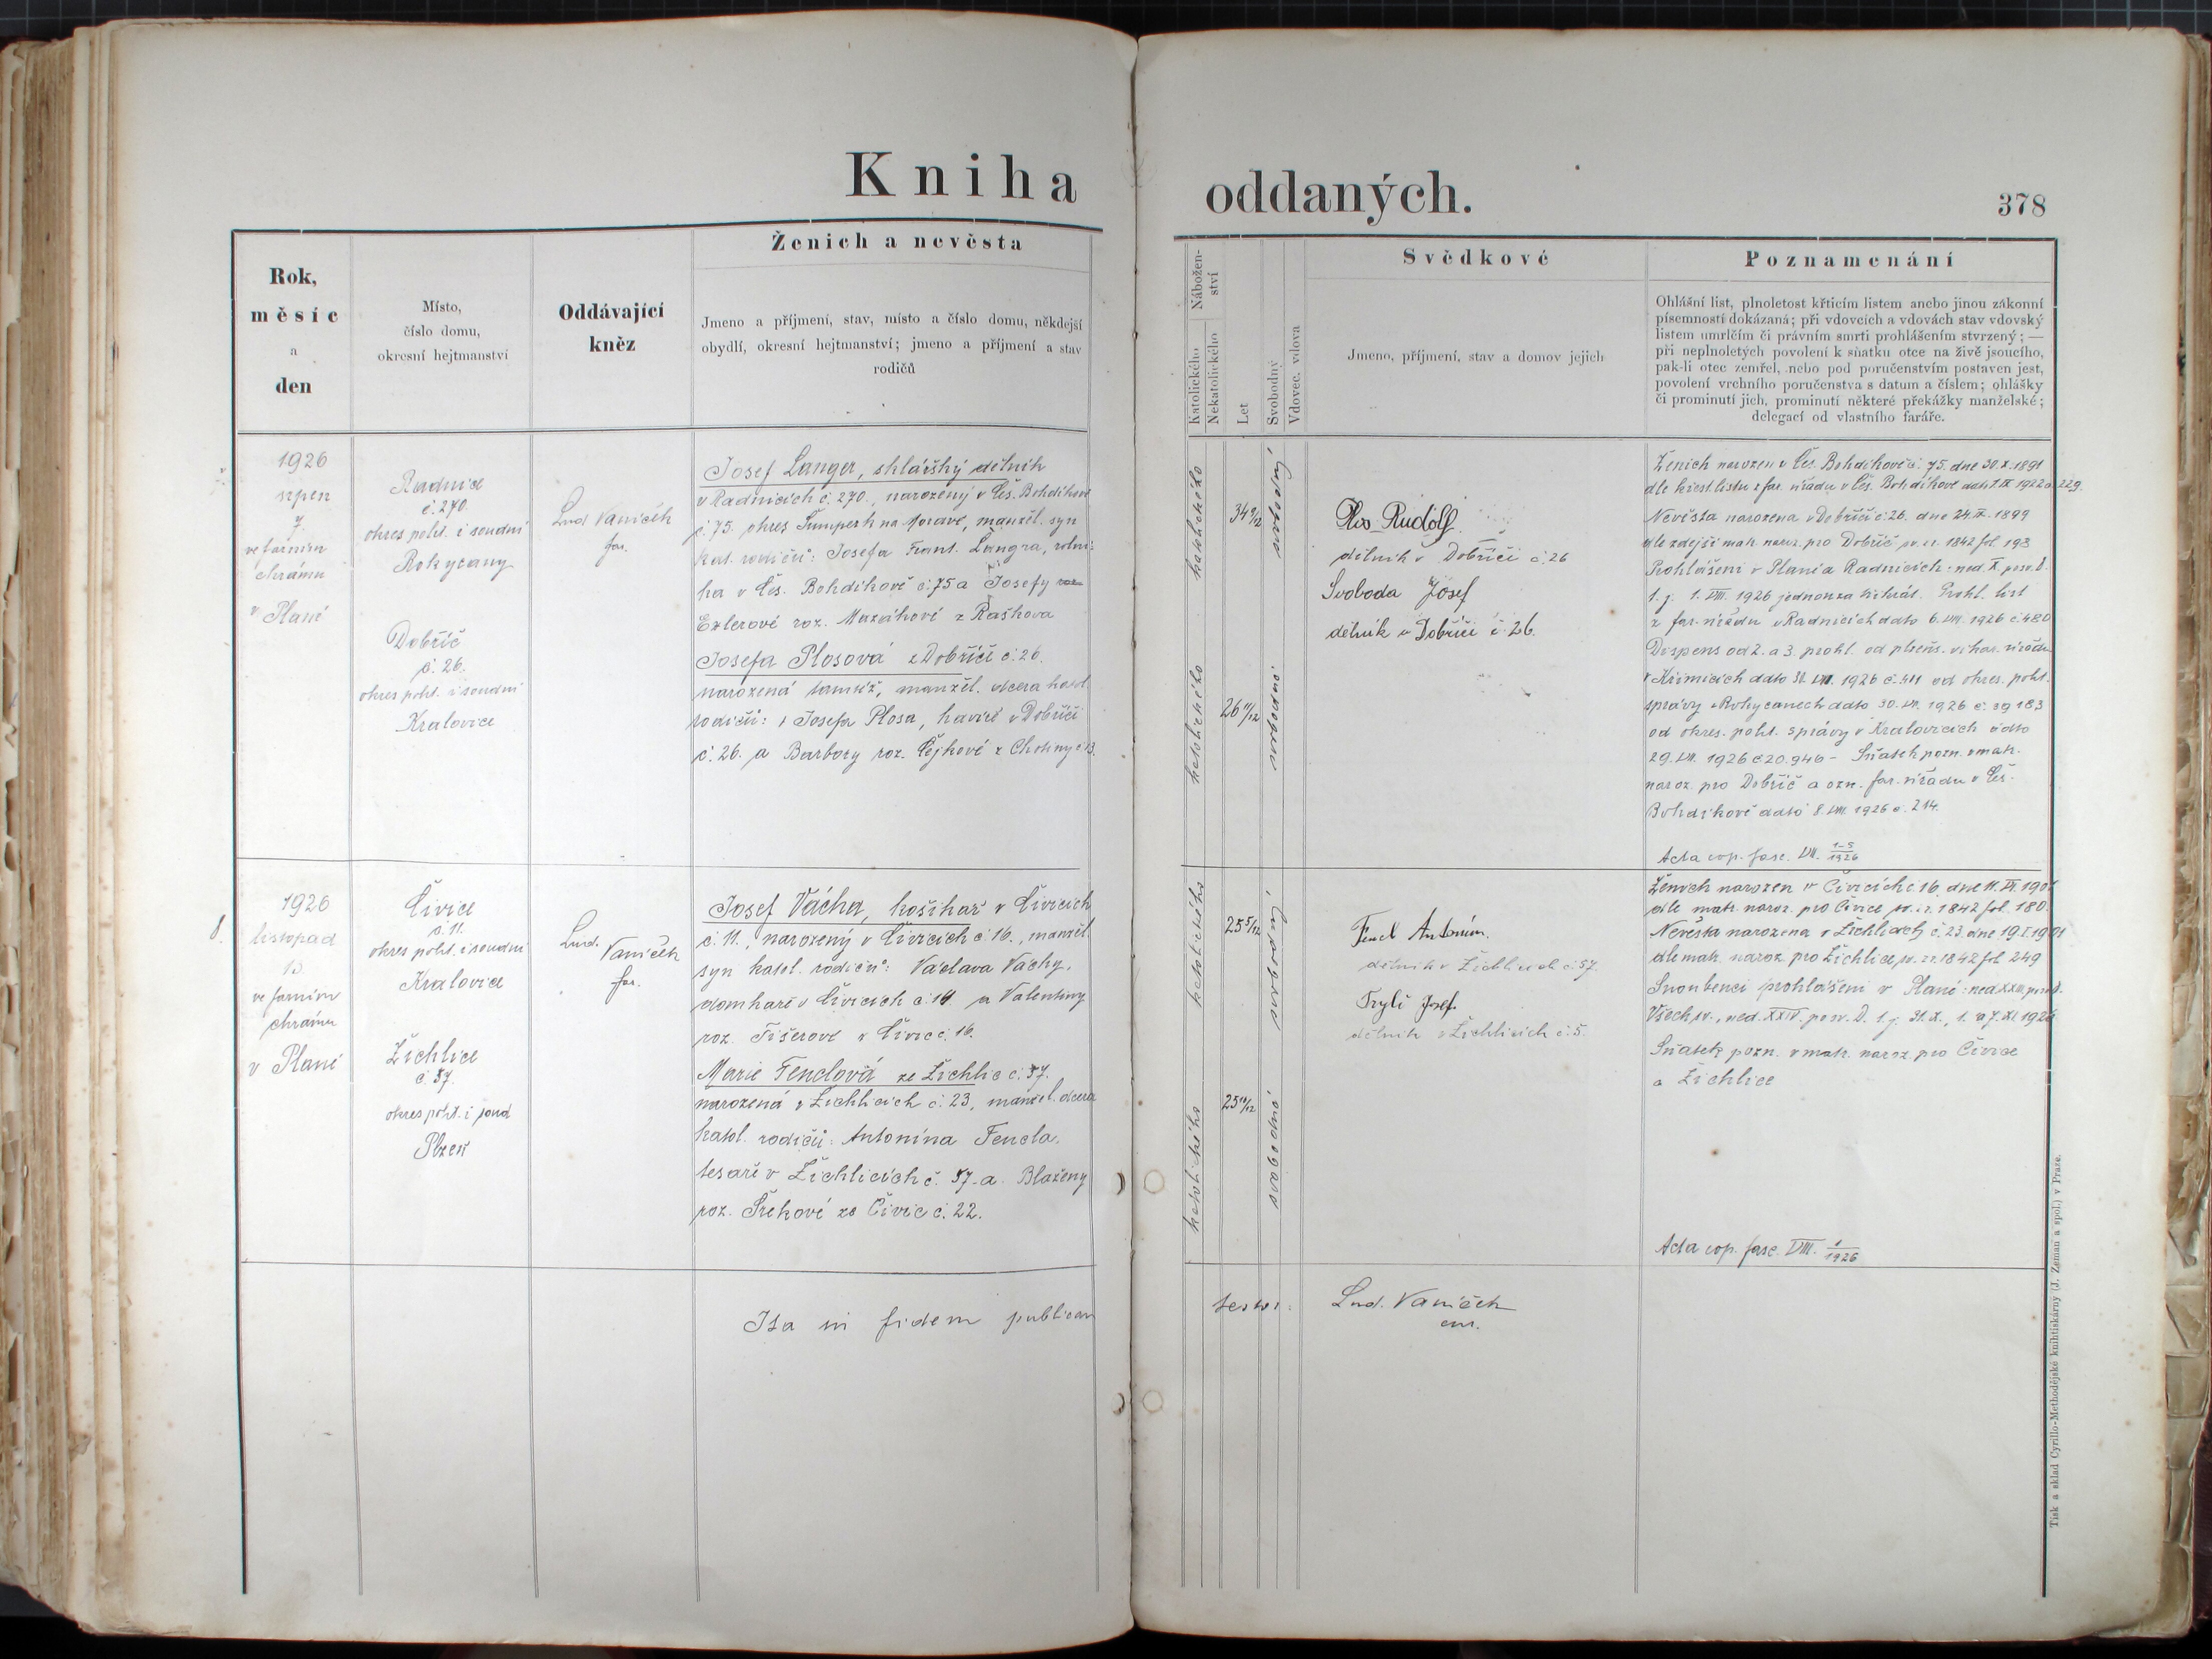 Kniha oddaných.
378
Rok,
měsíc
a
den
Místo,
číslo domu,
okresní hejtmanství
Oddávající
kněz
Ženich a nevěsta
Jmeno a příjmení, stav, místo a číslo domu, někdejší
obydlí, okresní hejtmanství; jmeno a příjmení a stav
rodičů
Nábožen-
ství
Katolického
Nekatolického
Let
Svobodný
Vdovec, vdova
Svědkové
Jmeno, příjmení, stav a domov jejich
Poznamenání
Ohlášní list, plnoletost křticím listem anebo jinou zákonní
písemností dokázaná; při vdovcích a vdovách stav vdovský
listem umrlčím či právním smrti prohlášením stvrzený; —
při neplnoletých povolení k sňatku otce na živě jsoucího,
pak-li otec zemřel, nebo pod poručenstvím postaven jest,
povolení vrchního poručenstva s datum a číslem; ohlášky
či prominutí jich, prominutí některé překážky manželské;
delegací od vlastního faráře.
1926
srpen
7.
ve farním
chrámu
v Plané
Radnice
č. 270.
okres polit. i soudní
Rokycany
Dobříč
č. 26.
okres polit. i soudní
Kralovice
Lud. Vaníček
far.
Josef Langer, sklářský dělník
v Radnicích č. 270., narozený v Čes. Bohdíkově
č. 75. okres Šumperk na Moravě, manžel. syn
kat. rodičů: Josefa Frant. Langra, rolní-
ka v Čes. Bohdíkově č. 75 a Josefy
Exlerové roz. Mazákové z Raškova
Josefa Plosová z Dobříče č. 26.
narozená tamtéž, manžel. dcera katol.
rodičů: Josefa Plosa, havíře v Dobříči
č. 26. a Barbory roz. Čejkové z Chotiny č. 13.
katolického
34 9/12
svobodný
katolického
26 11/12
svobodná
Plos Rudolf
dělník v Dobříči č. 26
Svoboda Josef
dělník v Dobříči č. 26.
Ženich narozen v Čes. Bohdíkově č. 75. dne 30.X.1891
dle křest. listu z far. úřadu v Čes. Bohdíkově ddto 1.IX 1922 č. 229.
Nevěsta narozena v Dobříči č. 26. dne 24.IX. 1899
dle zdejší matr. naroz. pro Dobříč sv. zr. 1842 fol. 193
Prohlášeni v Plané a Radnicích: ned. X. po sv. D.
t. j. 1. VIII. 1926 jednou za třikrát. Prohl. list
z far. úřadu v Radnicích ddto 6. VIII. 1926 č. 480
Dispens od 2. a 3. prohl. od plzeňs. vikar. úřadu
v Křimicích ddto 31. VII. 1926 č. 411 od okres. polit.
správy v Rokycanech ddto 30. VII. 1926 č. 29183
od okres. polit. správy v Kralovicích ddto
29. VII. 1926 č. 20.946 - Sňatek pozn. v matr.
naroz. pro Dobříč a ozn. far. úřadu v Čes.
Bohdíkově ddto 8. VIII. 1926 č. 214.
Acta cop. fasc. VIII. 1-5/1926
8.
1926
listopad
13
ve farním
chrámu
v Plané
Čivice
č. 11.
okres polit. i soudní
Kralovice
Žichlice
č. 57.
okres polit. i soud
Plzeň
Lud. Vaníček
far.
Josef Vácha, košíkář v Čivicích
č. 11., narozený v Čivicích č. 16., manžel.
syn katol. rodičů: Václava Váchy,
domkaře v Čivicích č. 14 a Valentiny
roz. Fišerové z Čivic č. 16.
Marie Fenclová ze Žichlic č. 57.
narozená v Žichlicích č. 23, manžel. dcera
katol. rodičů: Antonína Fencla,
tesaře v Žichlicích č. 57. a Blaženy
roz. Šikové ze Čivic č. 22.
katolického
25 5/12
svobodný
katolického
25 10/12
svobodná
Fencl Antonín.
dělník v Žichlicích č. 57.
Trylč Josef.
dělník v Žichlicích č. 5.
Ženich narozen v Čivicích č. 16. dne
dle matr. naroz. pro Čivice sv. zr. 1842 fol. 180.
Nevěsta narozena v Žichlicích č. 23. dne 19.I.1901
dle matr. naroz. pro Žichlice sv. zr. 1842 fol. 249
Snoubenci prohlášeni v Plané: ned. XXIII. po sv. D.
Všech sv., ned. XXIV. po sv. D. t. j. 31.X., 1. a 7. XI. 1926
Sňatek pozn. v matr. naroz. pro Čivice
a Žichlice
Acta cop. fasc. VIII. 1/1926
Ita in fidem publicam
testor: Lud. Vaníček
cur.
Tisk a sklad Cyrillo-Methodějské knihtiskárny (J. Zeman a spol.) v Praze.